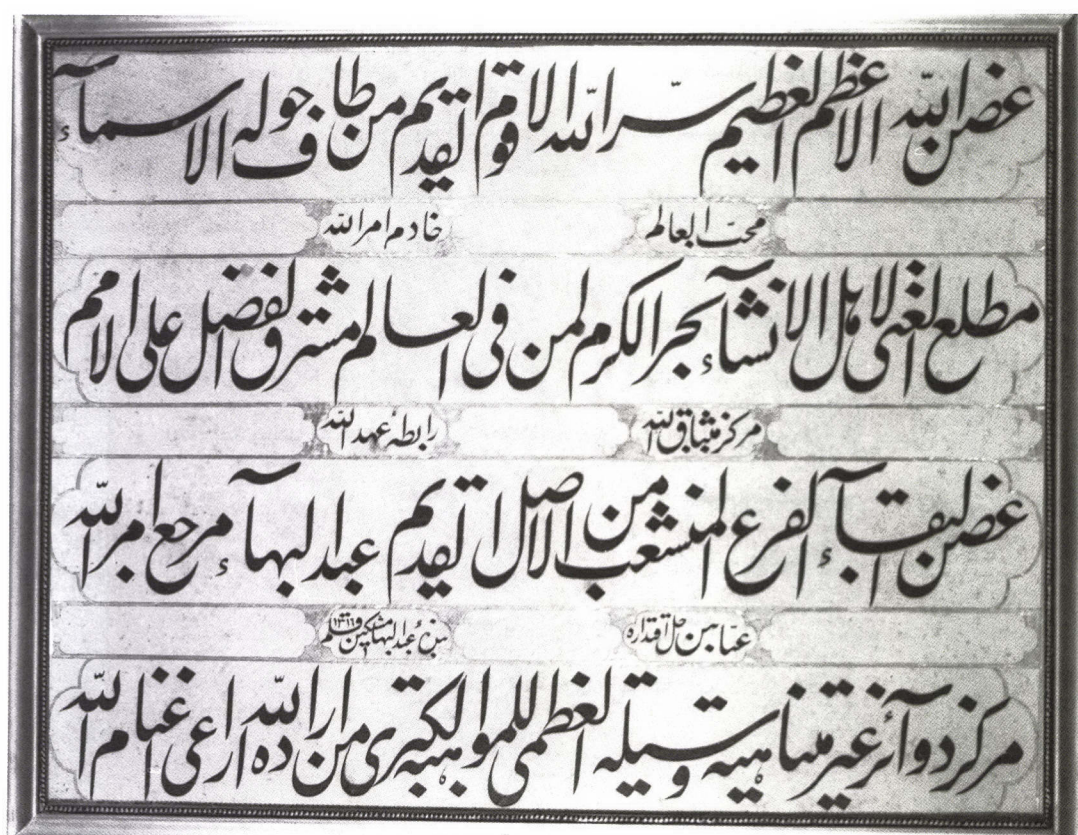 غصن الله الاعظم العظيم سرّ الله الاقوم القديم من طاف حوله الاسمآء
محبّ العالم خادم امر الله
مطلع الغنى لاهل الانشآء بحر الكرم لمن فى العالم مشرق الفضل على الامم
مركز ميثاق الله رابطهٔ عهد الله
غصن البقآء الفرع المنشعب من الاصل القديم عبد البهآء مرجع امر الله
عبّاس جل اقتداره بندهٔ عبد البهآء مشكين قلم ١٣١٦
مركز دوآئر غير متناهيه وسيلة العظمى للموهبة الكبرى من اراده الله راعى اغنام الله